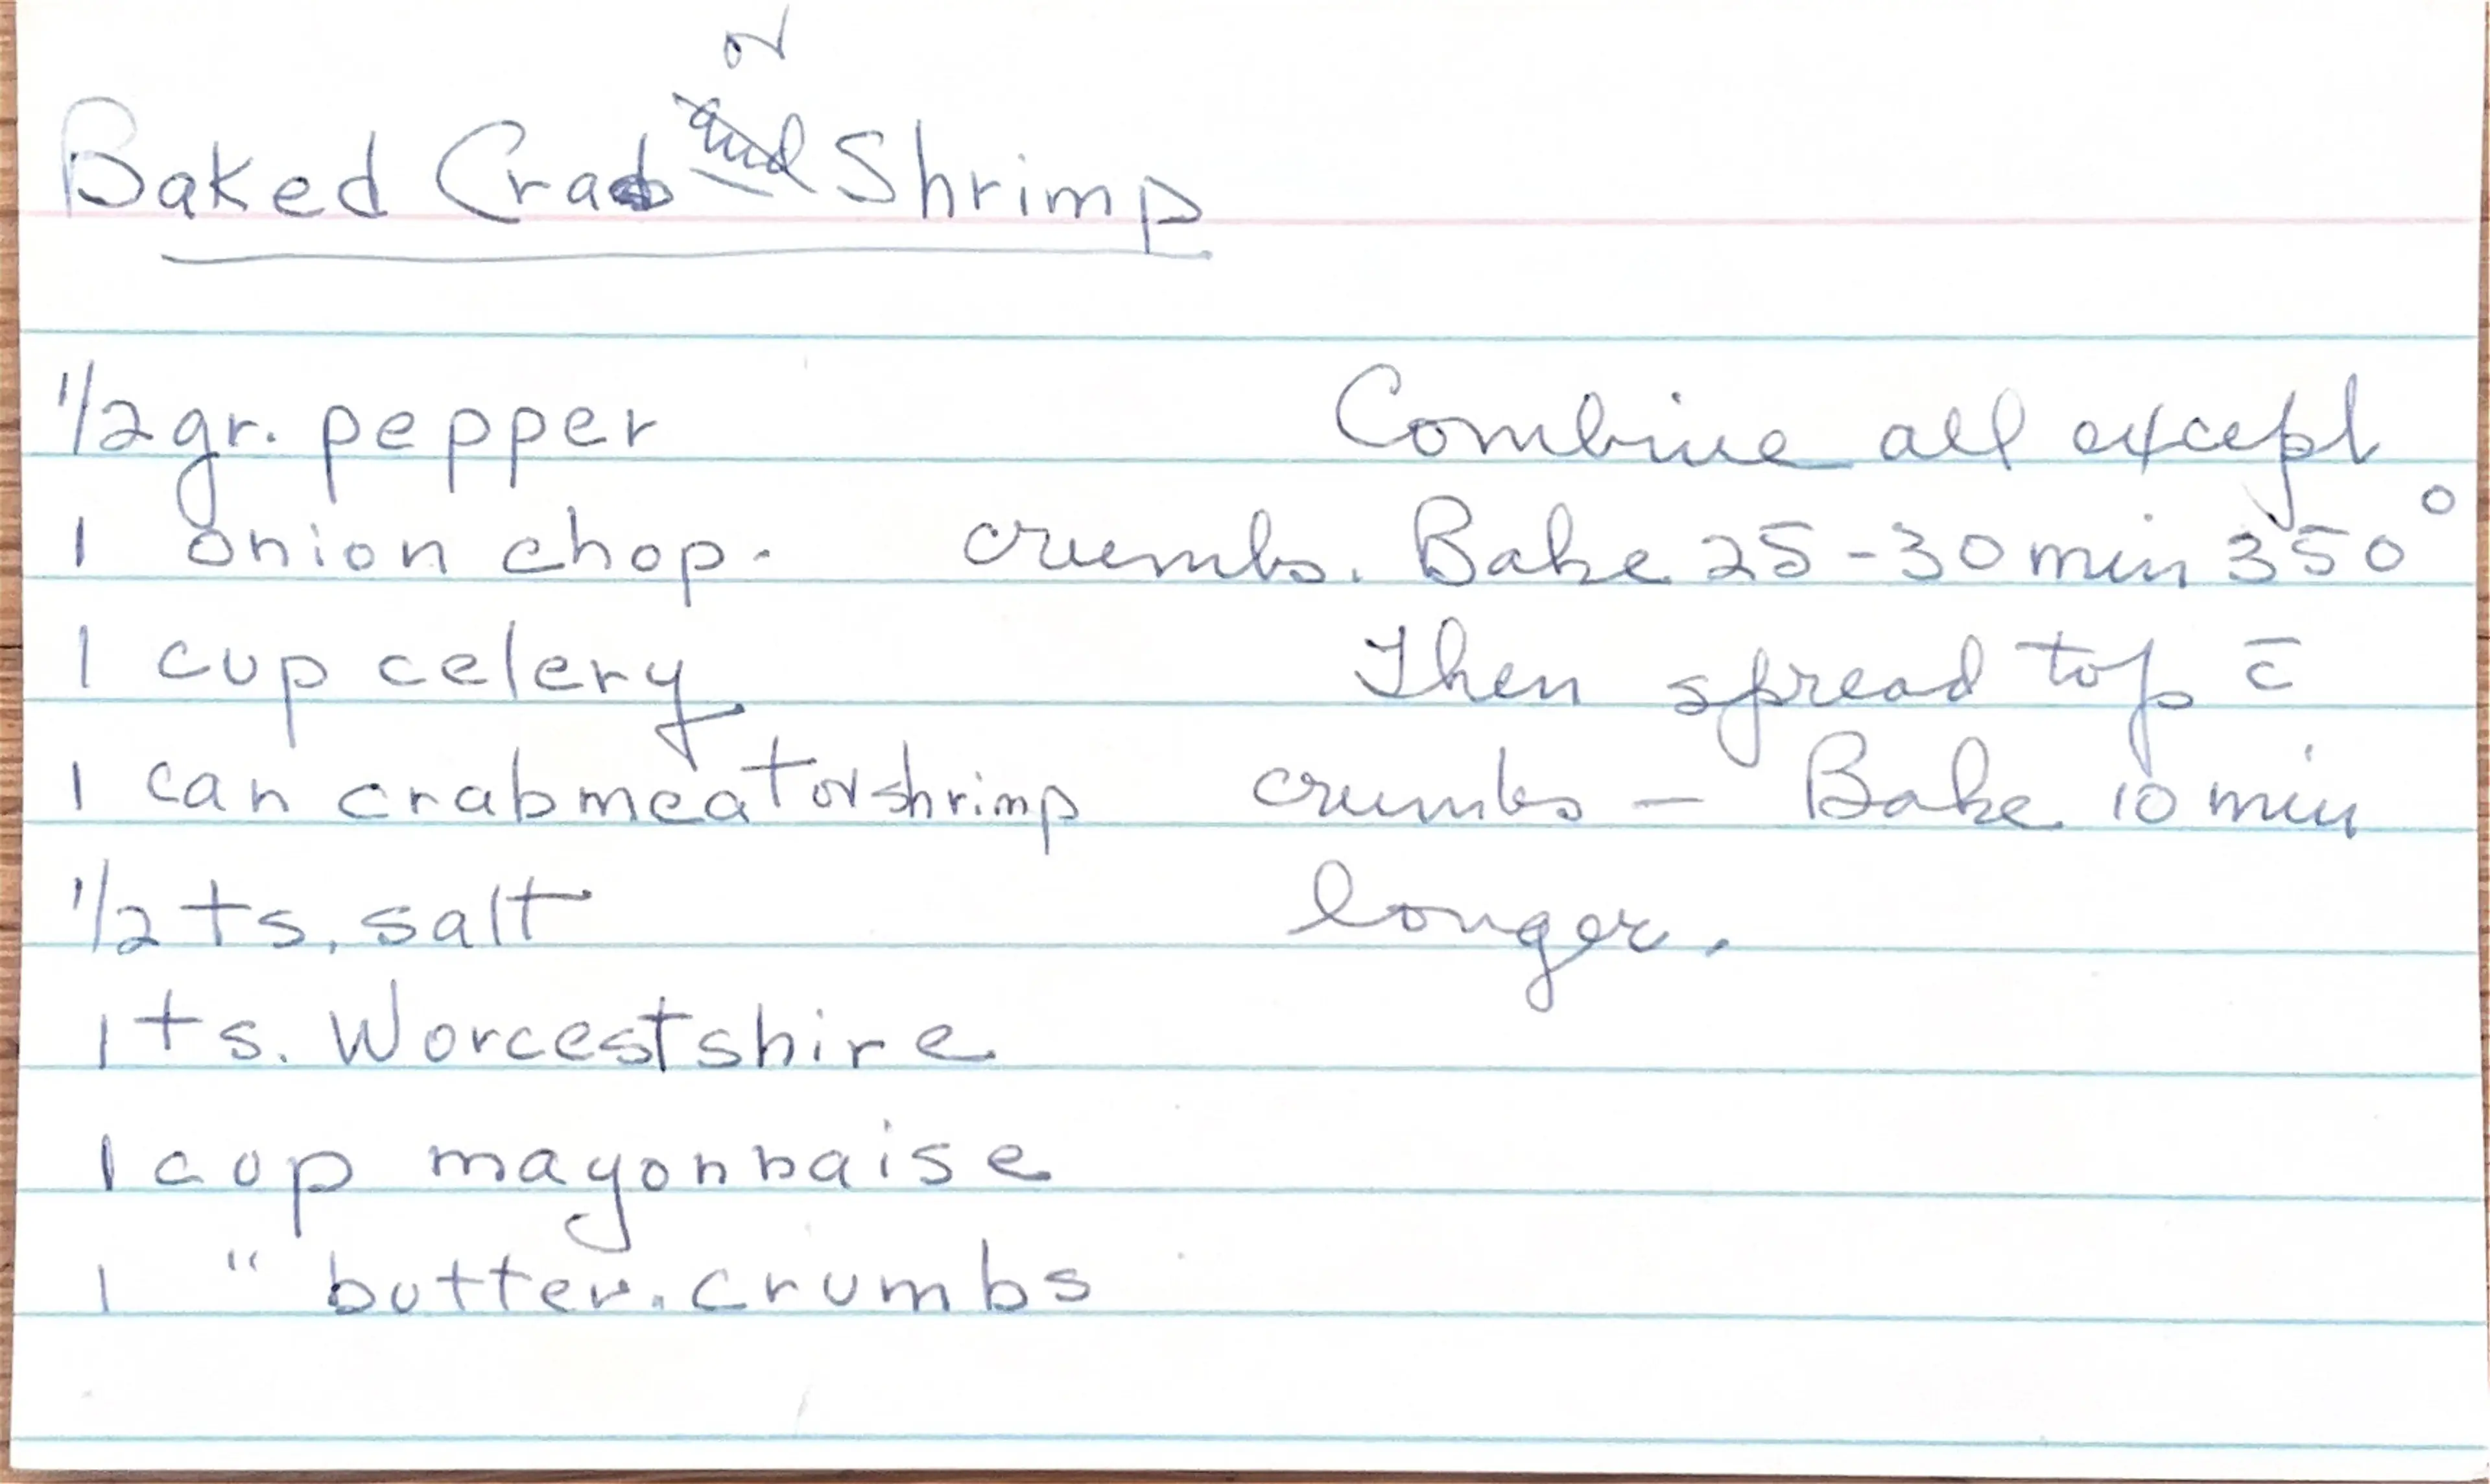 or
Baked Crab and Shrimp
1/2 gr. pepper
1 onion chop.
1 cup celery
1 can crabmeat or shrimp
1/2 ts. salt
1 ts. Worcestshire
1 cup mayonnaise
1 " butter. crumbs
Combine all except
crumbs. Bake 25-30 min 350°
Then spread top c̄
crumbs - Bake 10 min
longer.